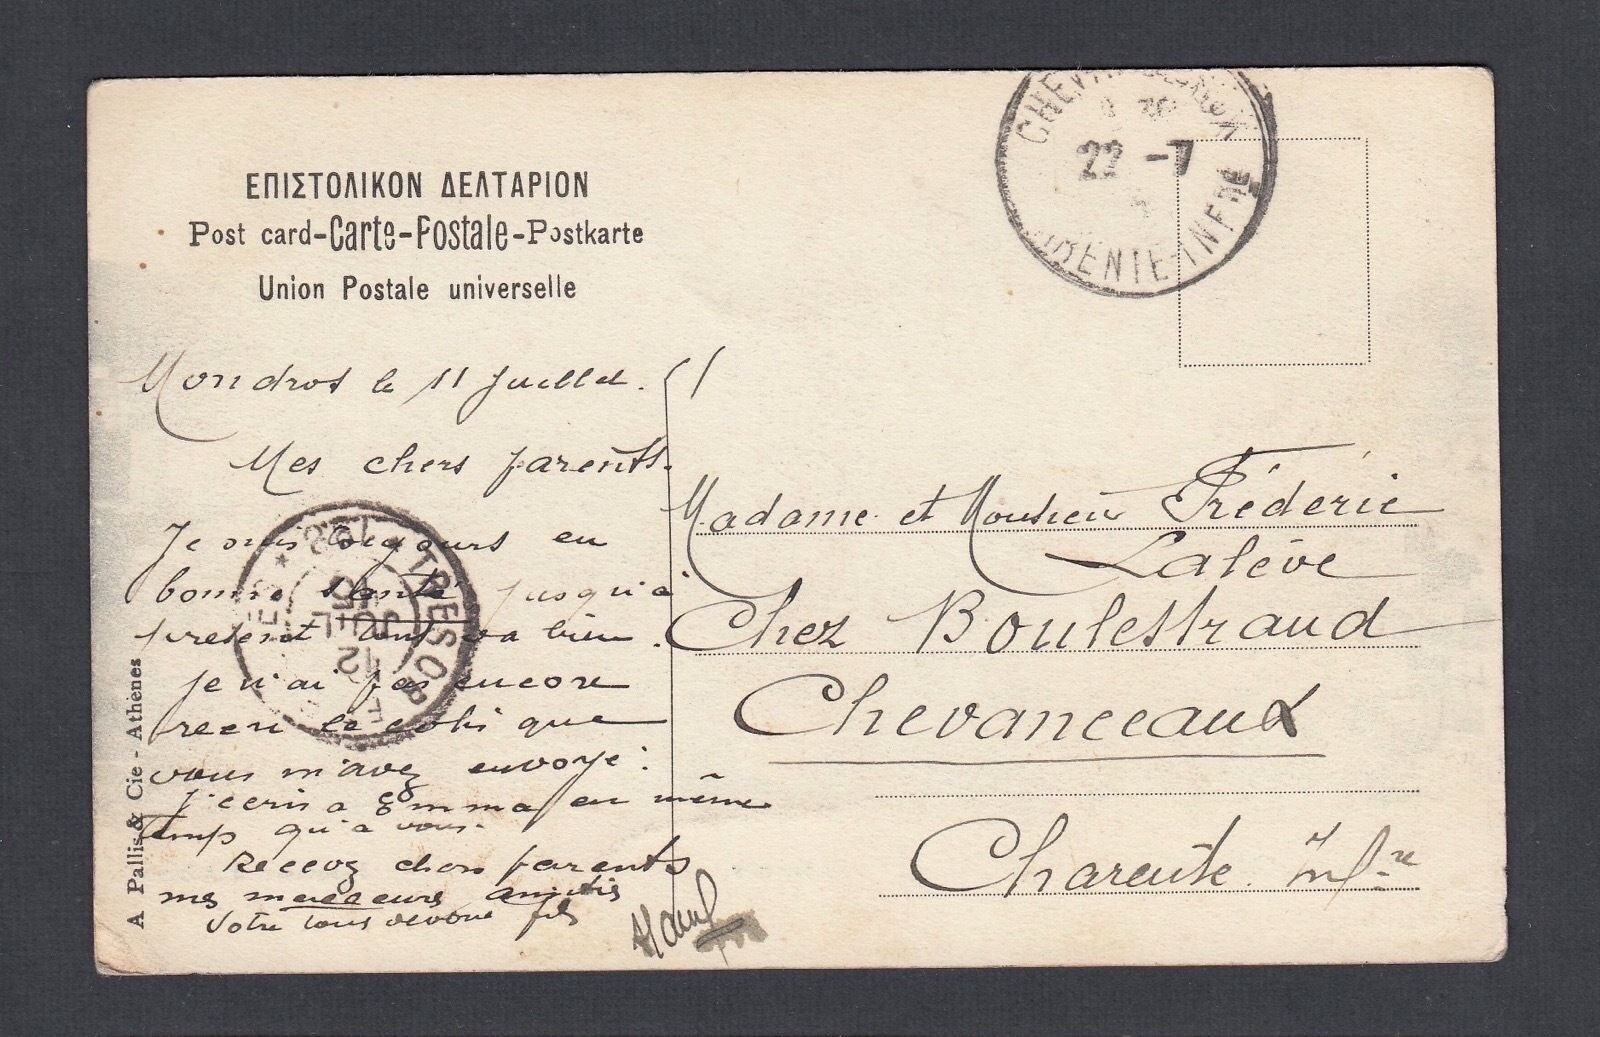 ΕΠΙΣΤΟΛΙΚΟΝ ΔΕΛΤΑΡΙΟΝ
Post card-Carte-Postale-Postkarte
Union Postale universelle
22 -7
Mondros le 11 Juillet.
Mes chers parents.
Je suis toujours en
bonne santé jusqu'a
present tout va bien.
je n'ai pas encore
recu le colis que
vous m'avez envoye:
J'ecris a Emma en même
temps qu'a vous.
Recevez chers parents
mes meilleurs amitis
Votre tous devoué fils
TRESOR
12
JUIL
15
Madame et Monsieur Fréderic
Laléve
Chez Boulestraud
Chevanceaux
Charente Infre
A Pallis & Cie - Athènes